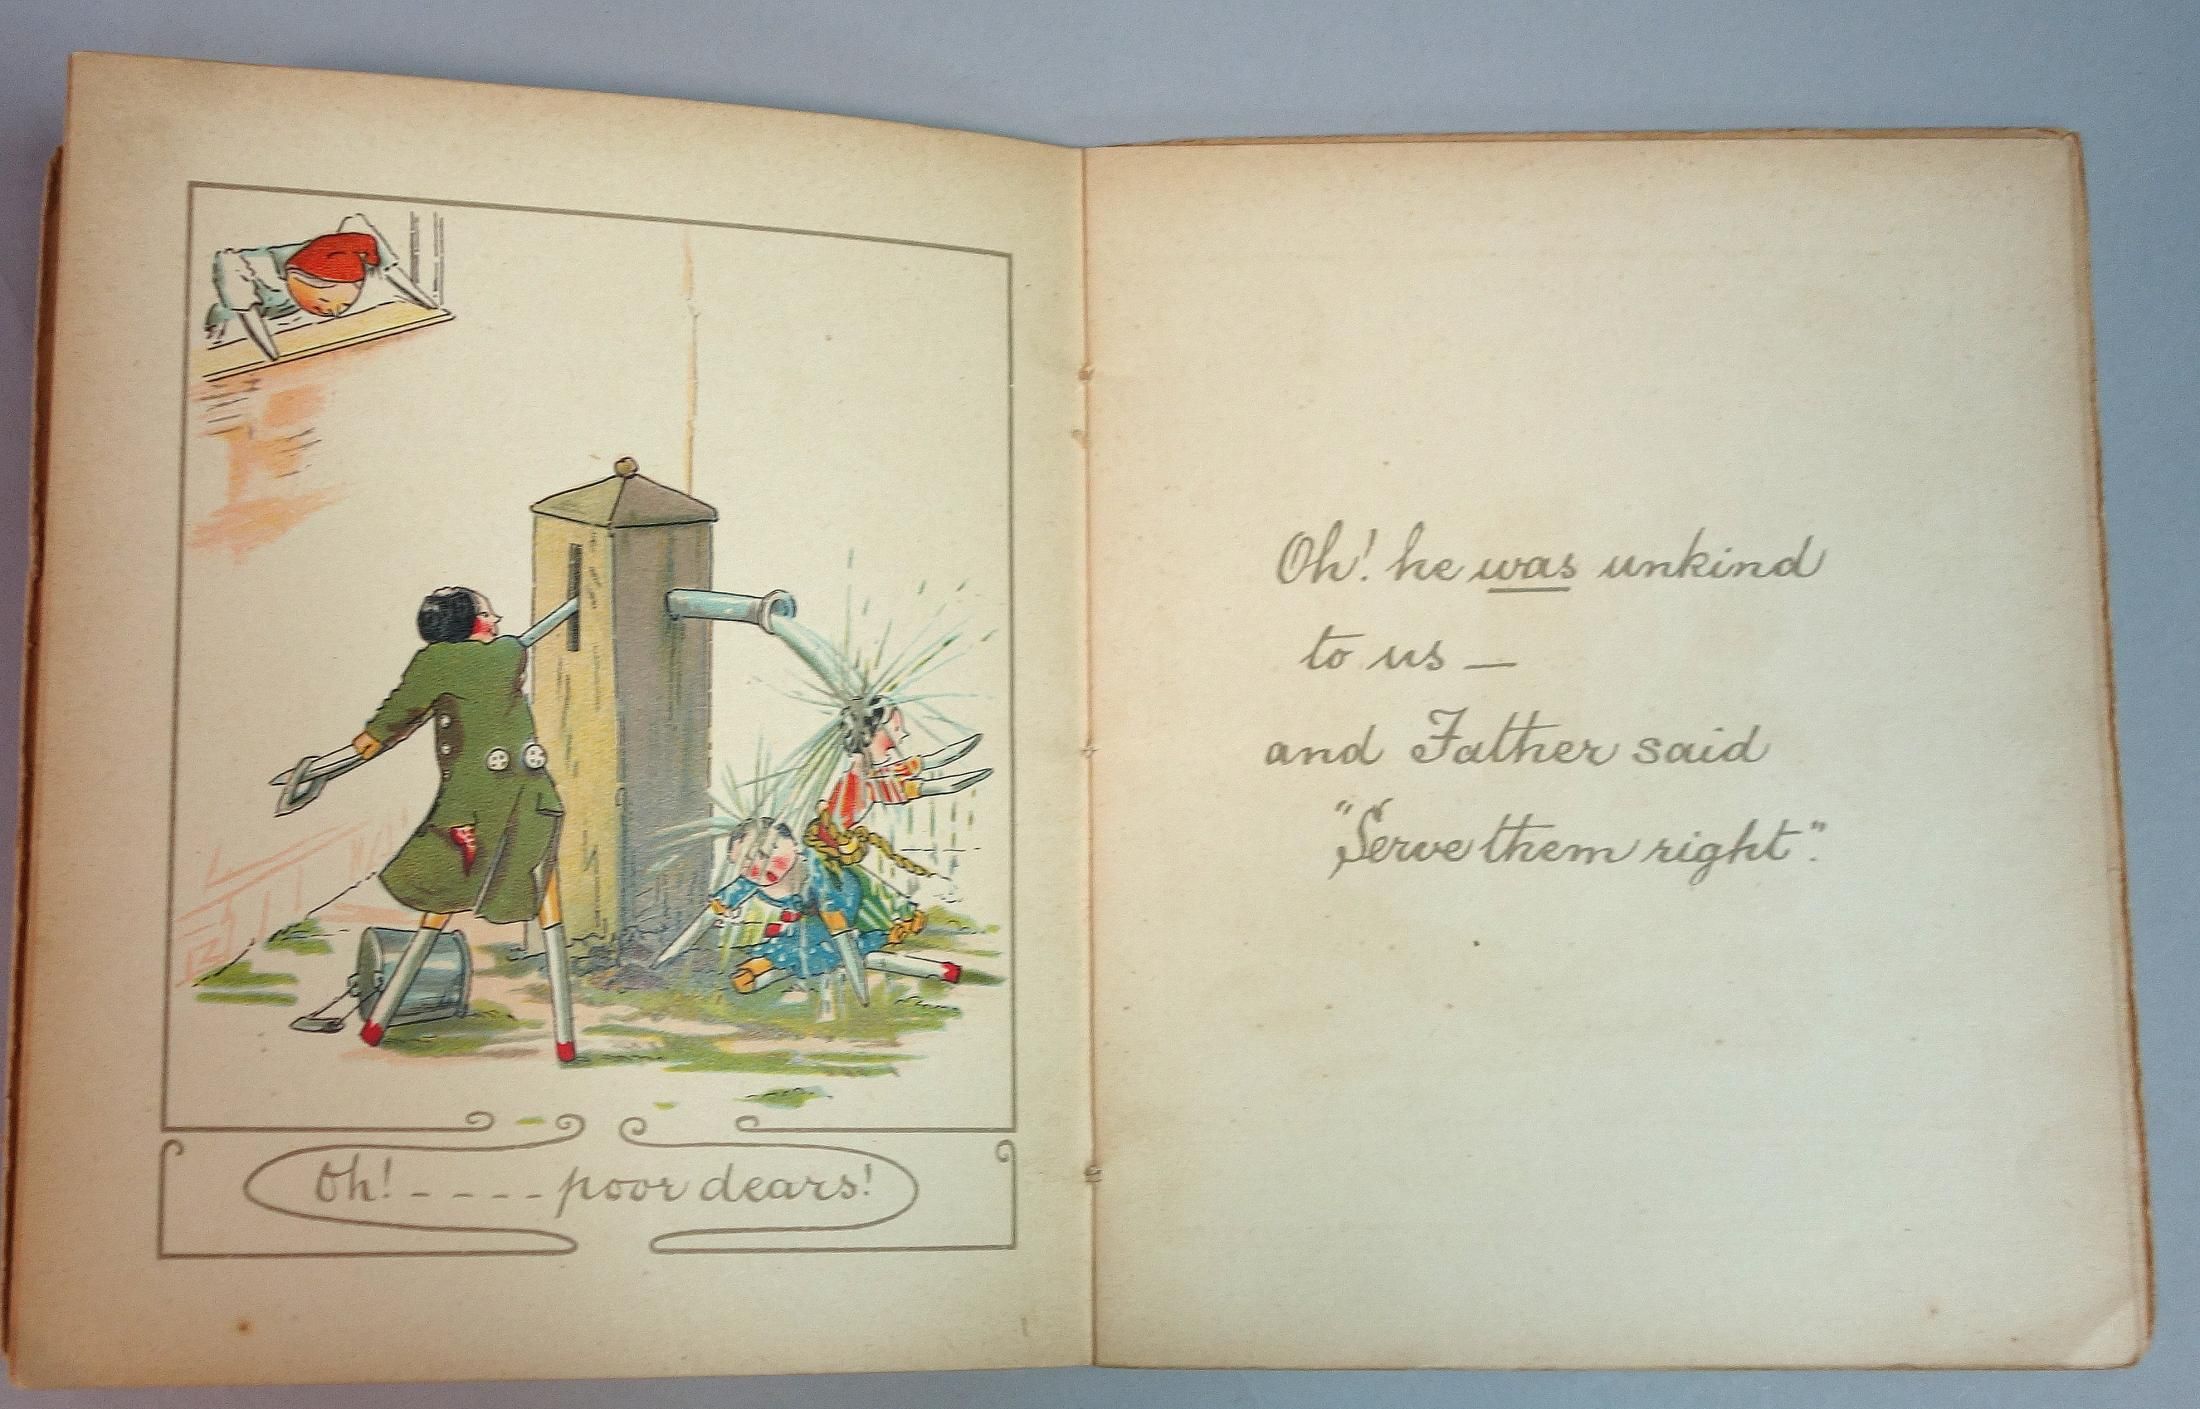 Oh! - - - - poor dears!
Oh! he was unkind
to us —
and Father said
"Serve them right".